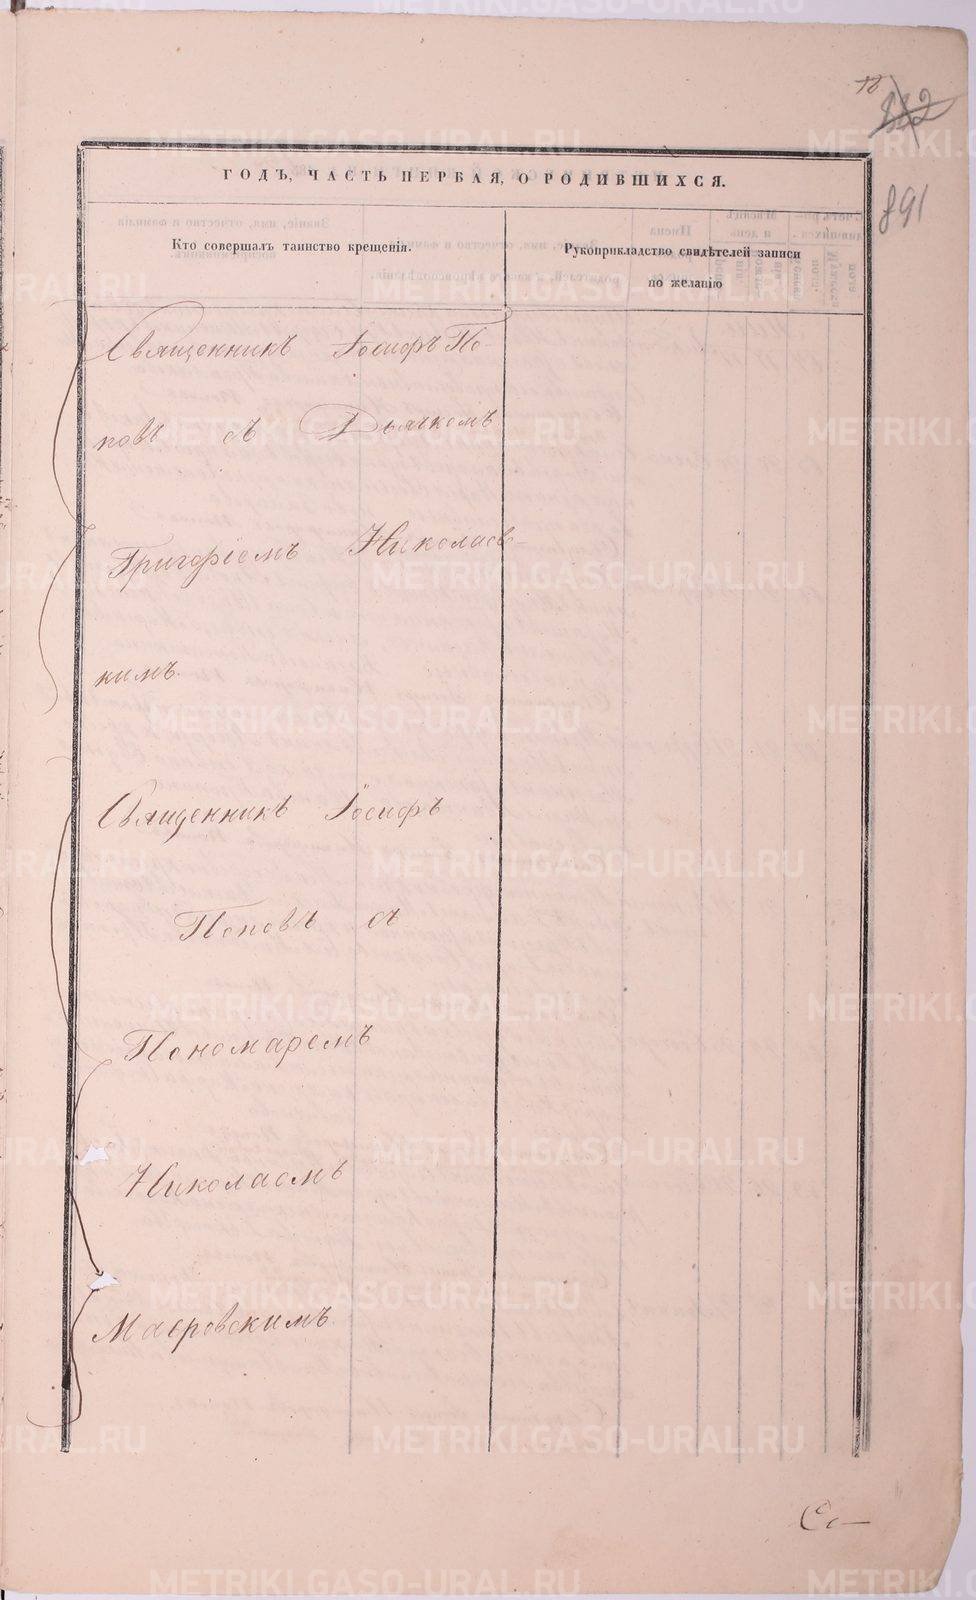 18
112
891
ГОДЪ, ЧАСТЬ ПЕРВАЯ, О РОДИВШИХСЯ.
Кто совершалъ таинство крещенія.
Рукоприкладство свидѣтелей записи
по желанію
Священникъ Іосифъ По-
повъ съ Дьячкомъ
Григоріемъ Николаевс-
кимъ.
Священникъ Іосифъ
Поповъ съ
Пономаремъ
Николаемъ
Мавровскимъ.
METRIKI.GASO-URAL.RU